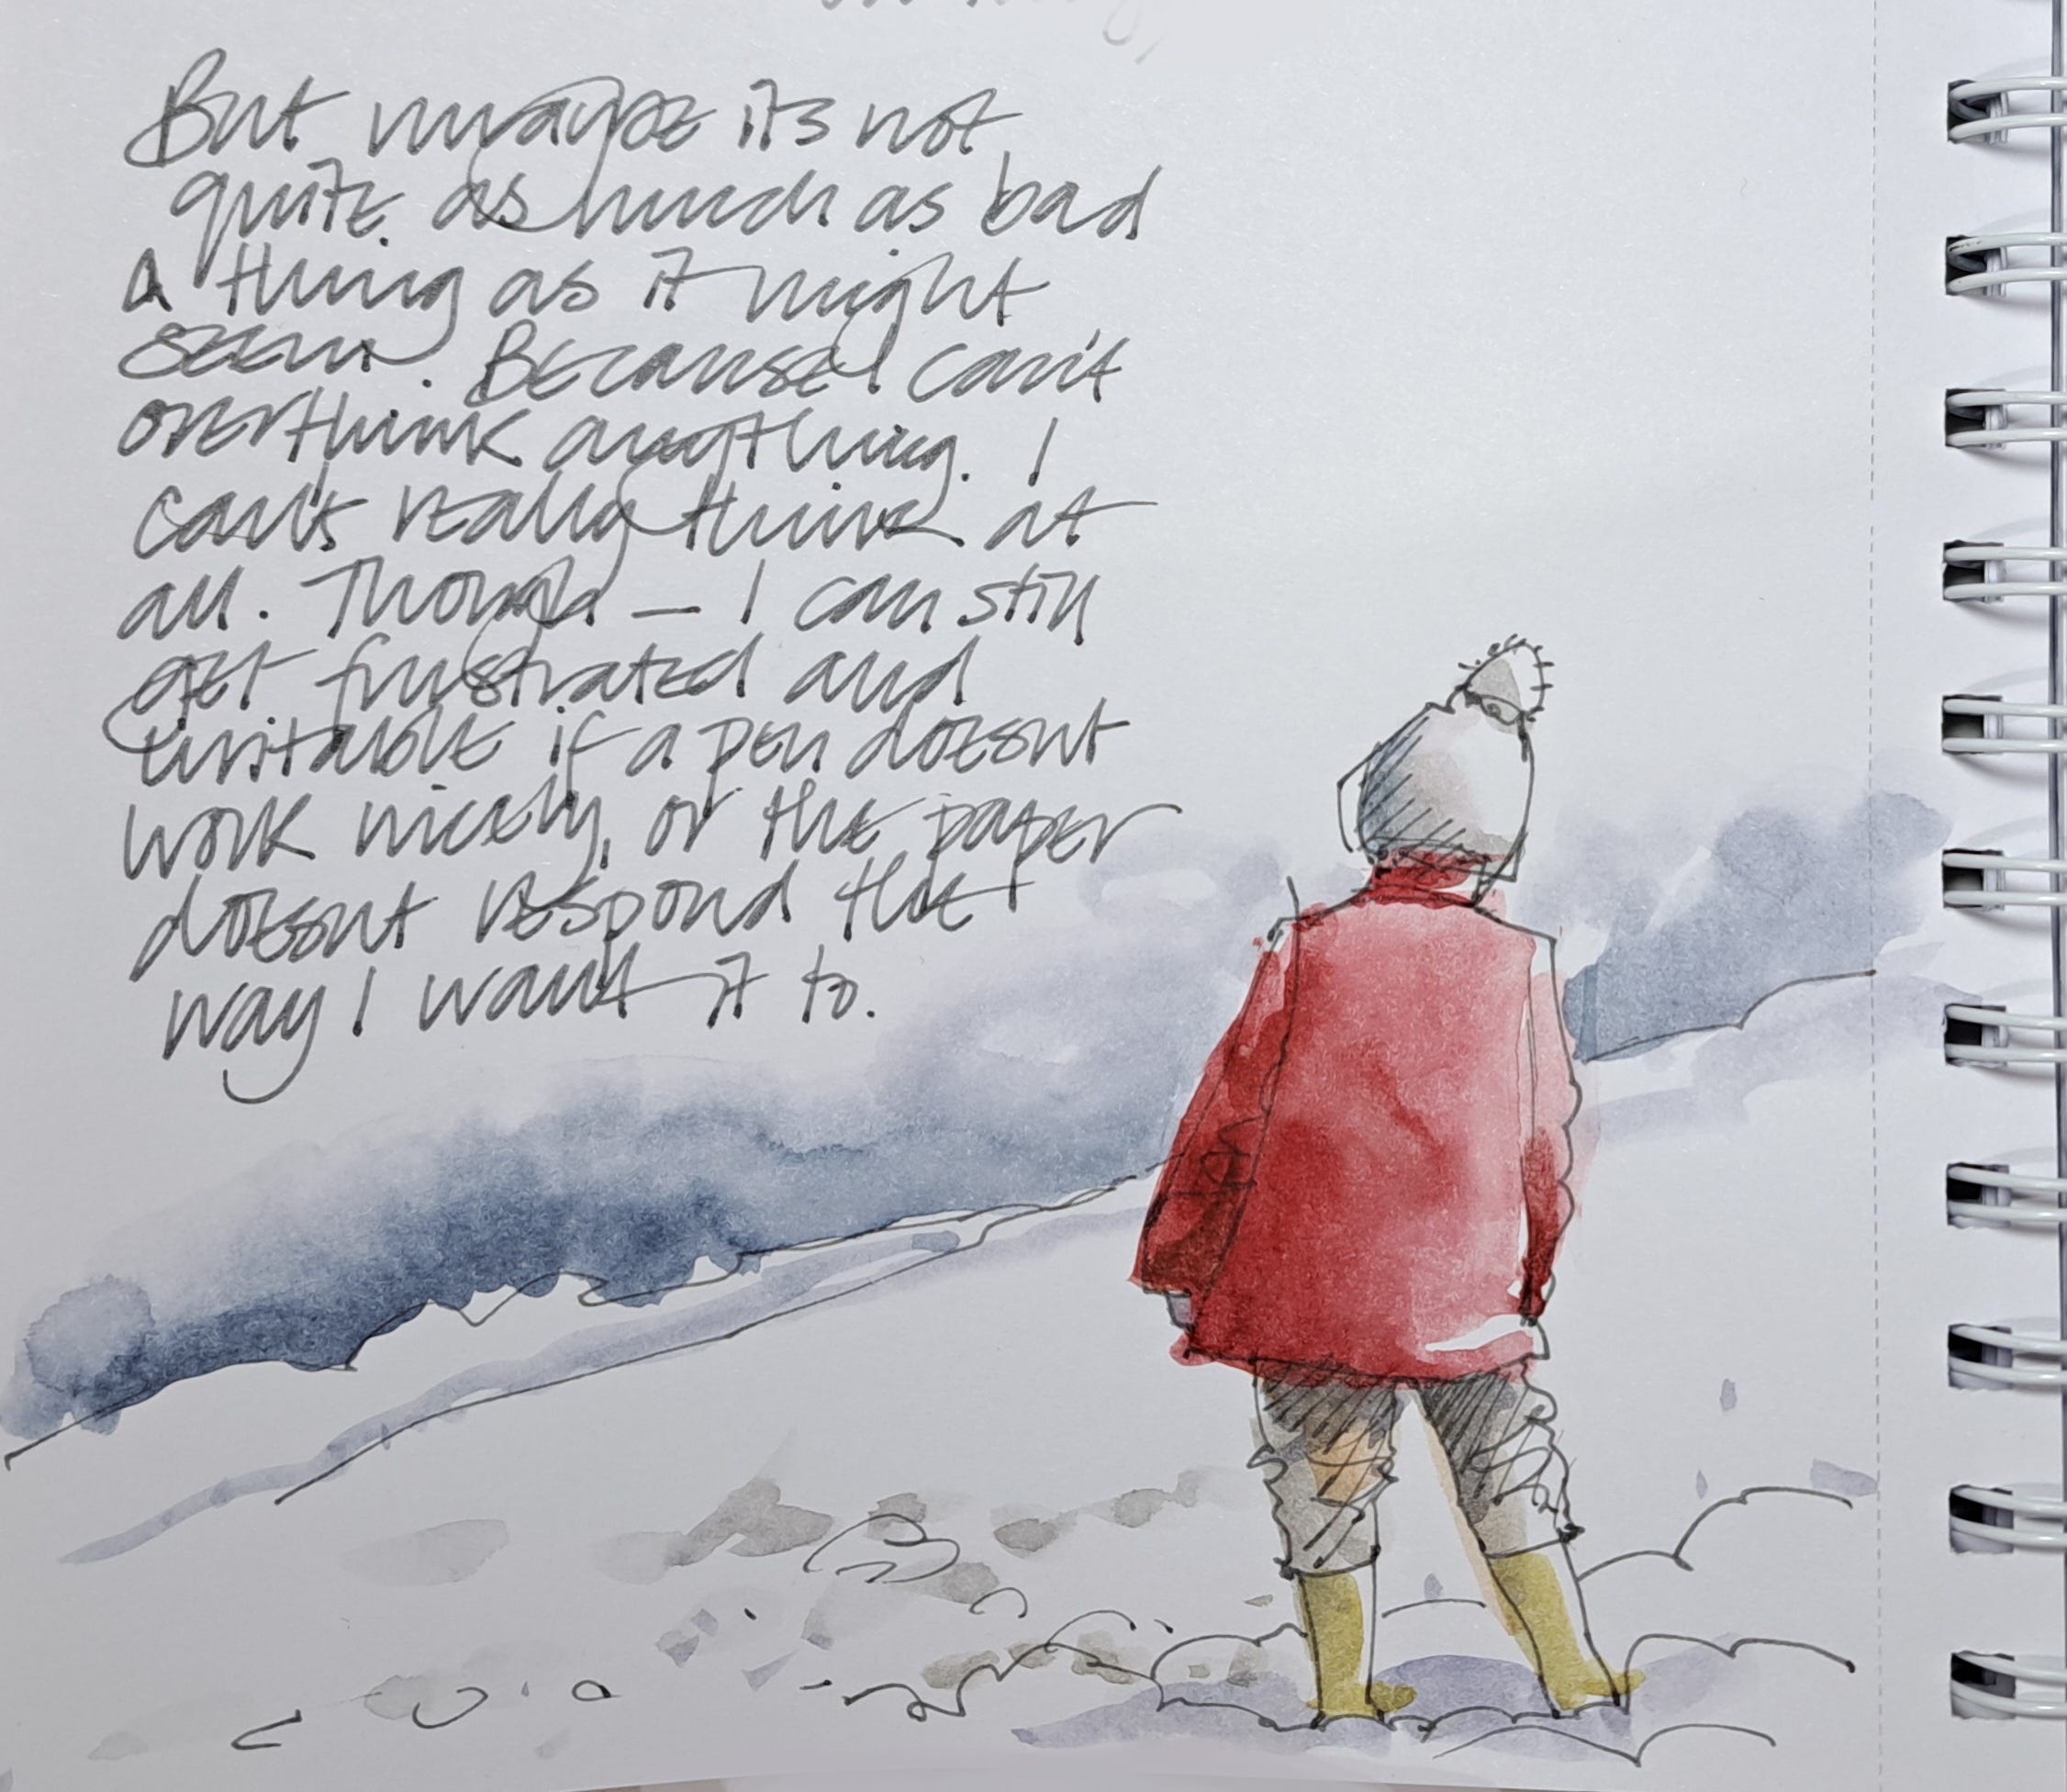 But maybe its not
quite as much as bad
a thing as it might
seem. Because I can't
overthink anything. I
can't really think at
all. Though — I can still
get frustrated and
irritable if a pen doesnt
work nicely, or the paper
doesnt respond the
way I want it to.